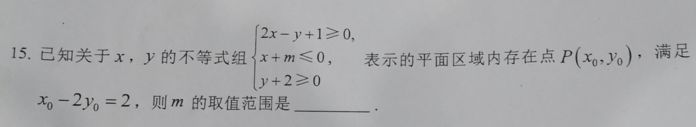 15. 已知关于 x，y 的不等式组 { 2x－y＋1≥0, x＋m≤0, y＋2≥0 表示的平面区域内存在点 P(x₀,y₀)，满足
x₀－2y₀＝2，则 m 的取值范围是________．